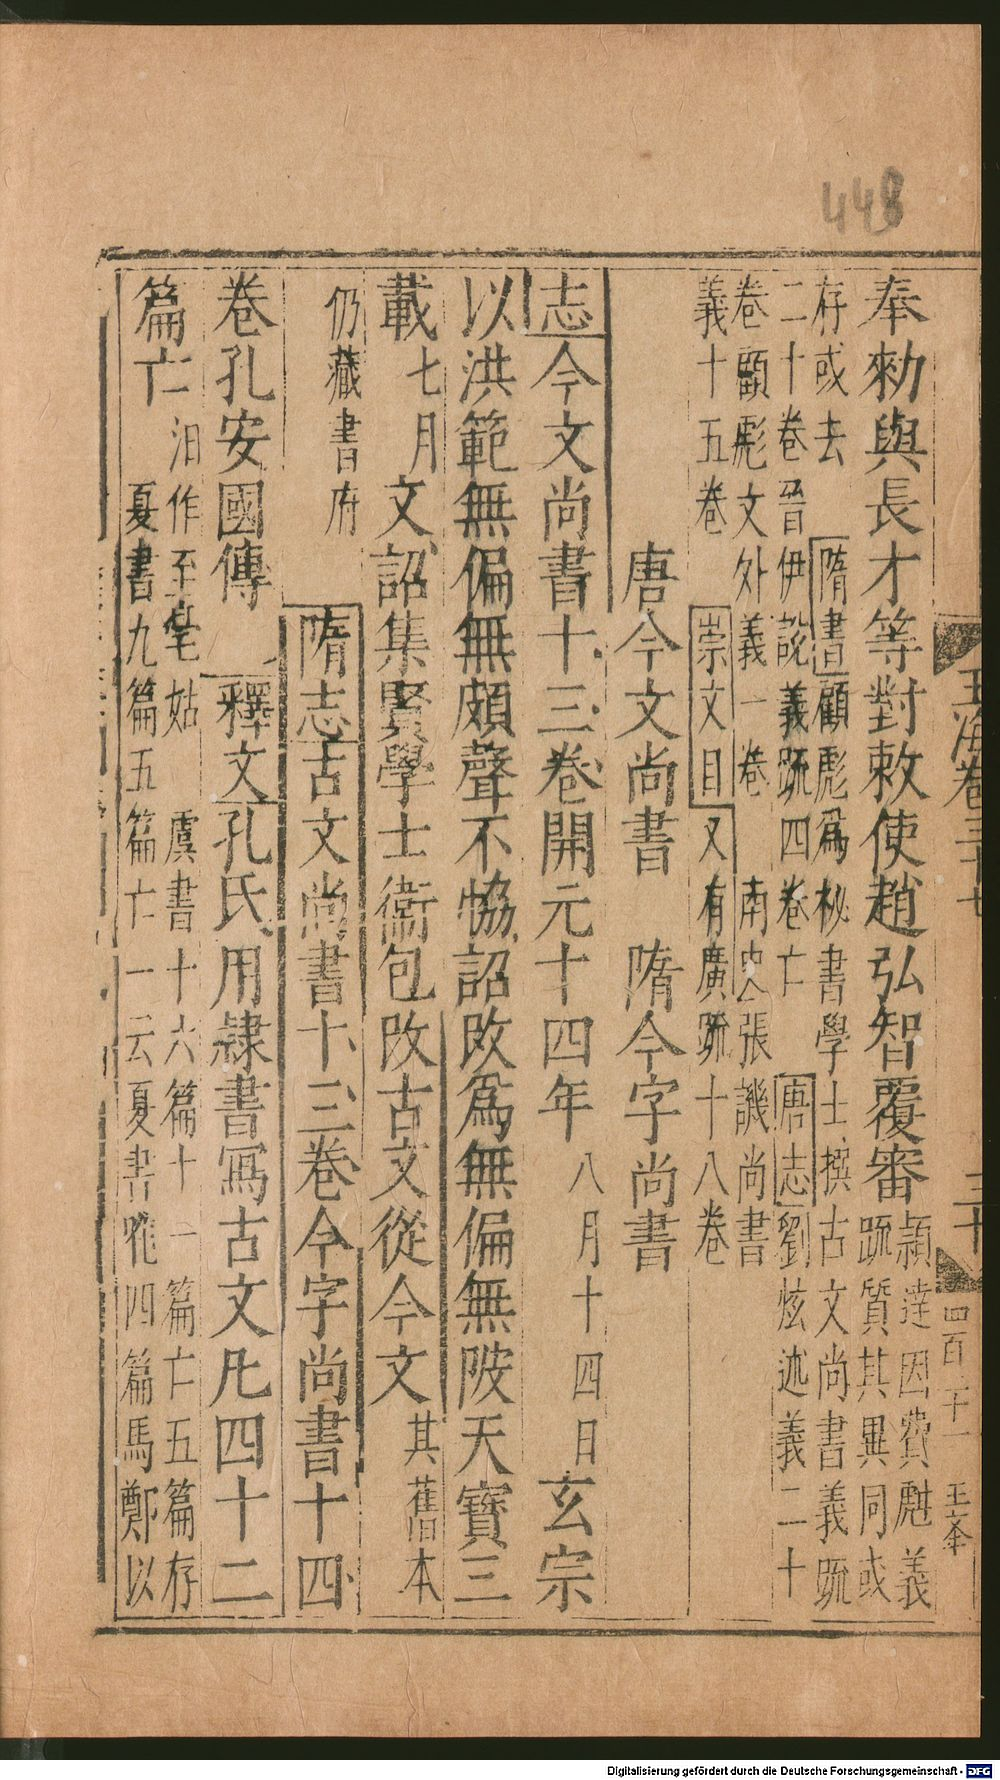 448
奉勑與長才等對敕使趙弘智覆審
頴達因費甝義
疏質其異同或
存或去
隋書
顧彪爲秘書學士撰古文尚書義疏
二十卷晉伊說義疏四卷亡
唐志
劉炫述義二十
卷顧彪文外義一卷
南史張譏尚書
義十五卷
崇文目
又有廣疏十八卷
唐今文尚書 隋今字尚書
志今文尚書十三卷開元十四年
八月十四日
玄宗
以洪範無偏無頗聲不恊詔改爲無偏無陂天寶三
載
七月
又詔集賢學士衞包改古文從今文
其舊本
仍藏書府
隋志古文尚書十三卷今字尚書十四
卷孔安國傳
釋文孔氏用隷書寫古文凡四十二
篇亡
汨作至亳姑 虞書十六篇十一篇亡五篇存
夏書九篇五篇亡一云夏書唯四篇馬鄭以
玉海卷三十七
三十
四百
王夆
Digitalisierung gefördert durch die Deutsche Forschungsgemeinschaft - DFG